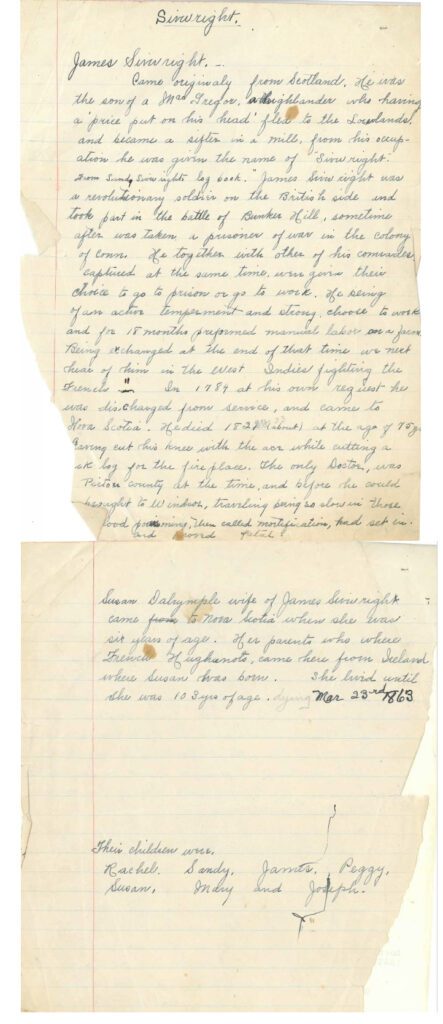 Sivwright.
James Sivwright.
Came originaly from Scotland. He was
the son of a Mac Gregor, a Highlander who having
a "price" put on his "head" fled to the Lowlands,
and became a sifter in a mill, from his occup-
ation he was given the name of "Sivwright".
From Sandy Sivwrights log book. "James Sivwright was
a revolutionary soldier on the British side and
took part in the battle of Bunker Hill, sometime
after was taken a prisoner of war in the colony
of Conn. He together with other of his comrades
captured at the same time were given their
choice to go to prison or go to work. He being
of an active temperment and strong, choose to work
and for 18 months preformed manual labor on a farm
Being exchanged at the end of that time we next
hear of him in the West Indies fighting the
French" In 1784 at his own request he
was discharged from service, and came to
Nova Scotia. He died 182 (about) at the age of 75 yr
having cut his knee with the axe while cutting a
log for the fire place. The only Doctor, was
Pictou county at the time, and before he could
brought to Windsor, traveling being so slow in those
blood poisoning, then called mortification, had set in.
and proved fatal
Susan Dalrymple wife of James Sivwright
came to Nova Scotia when she was
six years of age. Her parents who where
French Hughanots, came here from Ireland
where Susan was born. She lived until
she was 103 yrs of age. dying Mar 23rd 1863
Their children were.
Rachel. Sandy, James, Peggy,
Susan, Mary and Joseph.